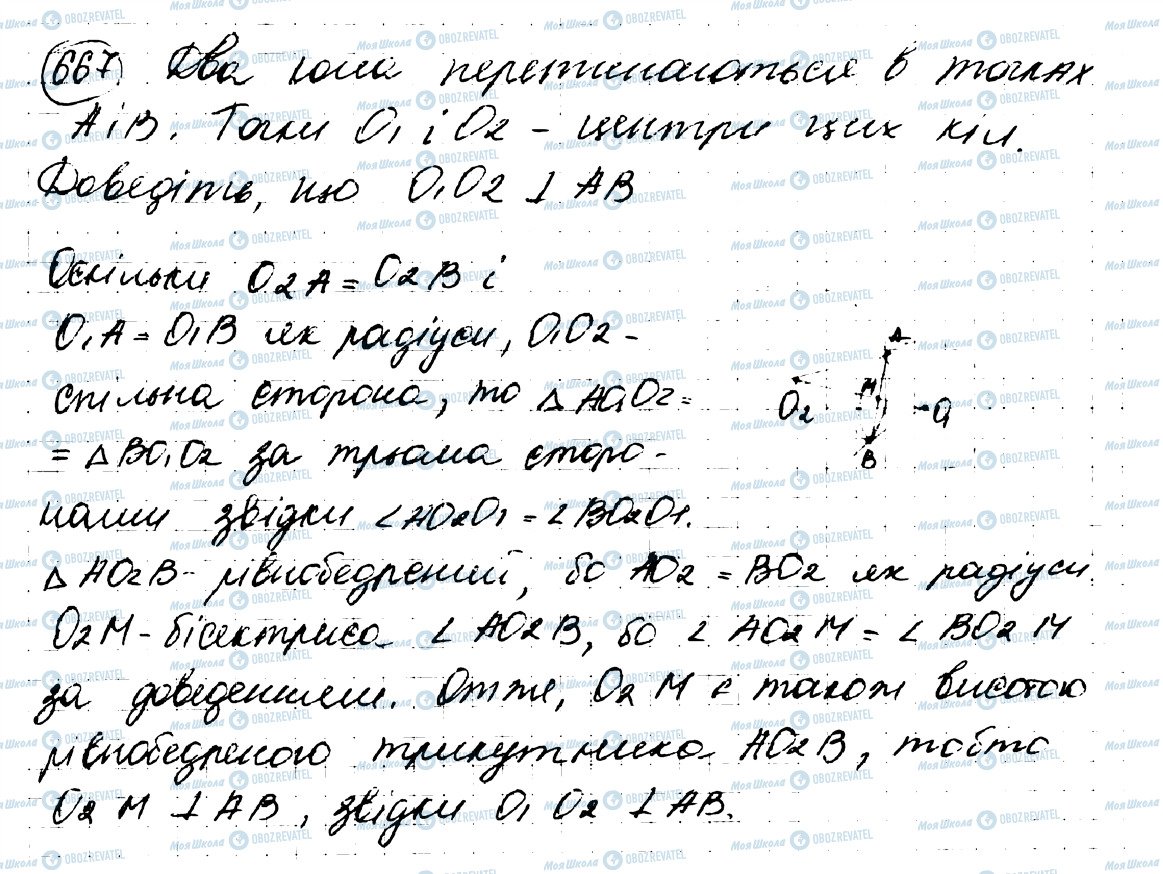 667. Два кола перетинаються в точках
A і B. Точки O1 і O2 - центри цих кіл.
Доведіть, що O1O2 ⊥ AB
Оскільки O2A = O2B і
O1A = O1B як радіуси, O1O2 -
спільна сторона, то △ AO1O2 =
= △ BO1O2 за трьома сторо-
нами звідки ∠AO2O1 = ∠BO2O1.
△ AO2B - рівнобедрений, бо AO2 = BO2 як радіуси.
O2M - бісектриса ∠ AO2B, бо ∠ AO2M = ∠ BO2M
за доведенням. Отже, O2M є також висотою
рівнобедреного трикутника AO2B, тобто
O2M ⊥ AB, звідки O1O2 ⊥ AB.
A
M
O2
O1
B
Моя Школа OBOZREVATEL